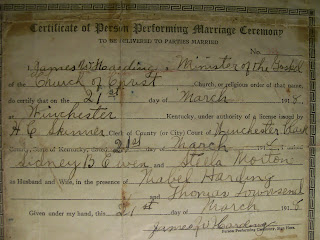 Certificate of Person Performing Marriage Ceremony
TO BE DELIVERED TO PARTIES MARRIED
No.
James W Harding, a Minister of the
Church of Christ Church, or religious order of that name,
do certify that on the 21st day of March 1918, at
Winchester Kentucky, under authority of a license issued by
H. C. Skinner Clerk of County (or City) Court of Winchester
County, Kentucky, dated 21st day of March
Sidney B Ewen and Stella Morton
as Husband and Wife, in the presence of Mabel Harding
and Thomas Townsend
Given under my hand, this 21st day of March 1918
James W Harding
Person Performing Ceremony, Sign Here.